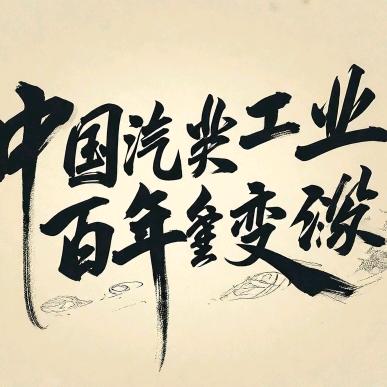 中国汽工业
百年变